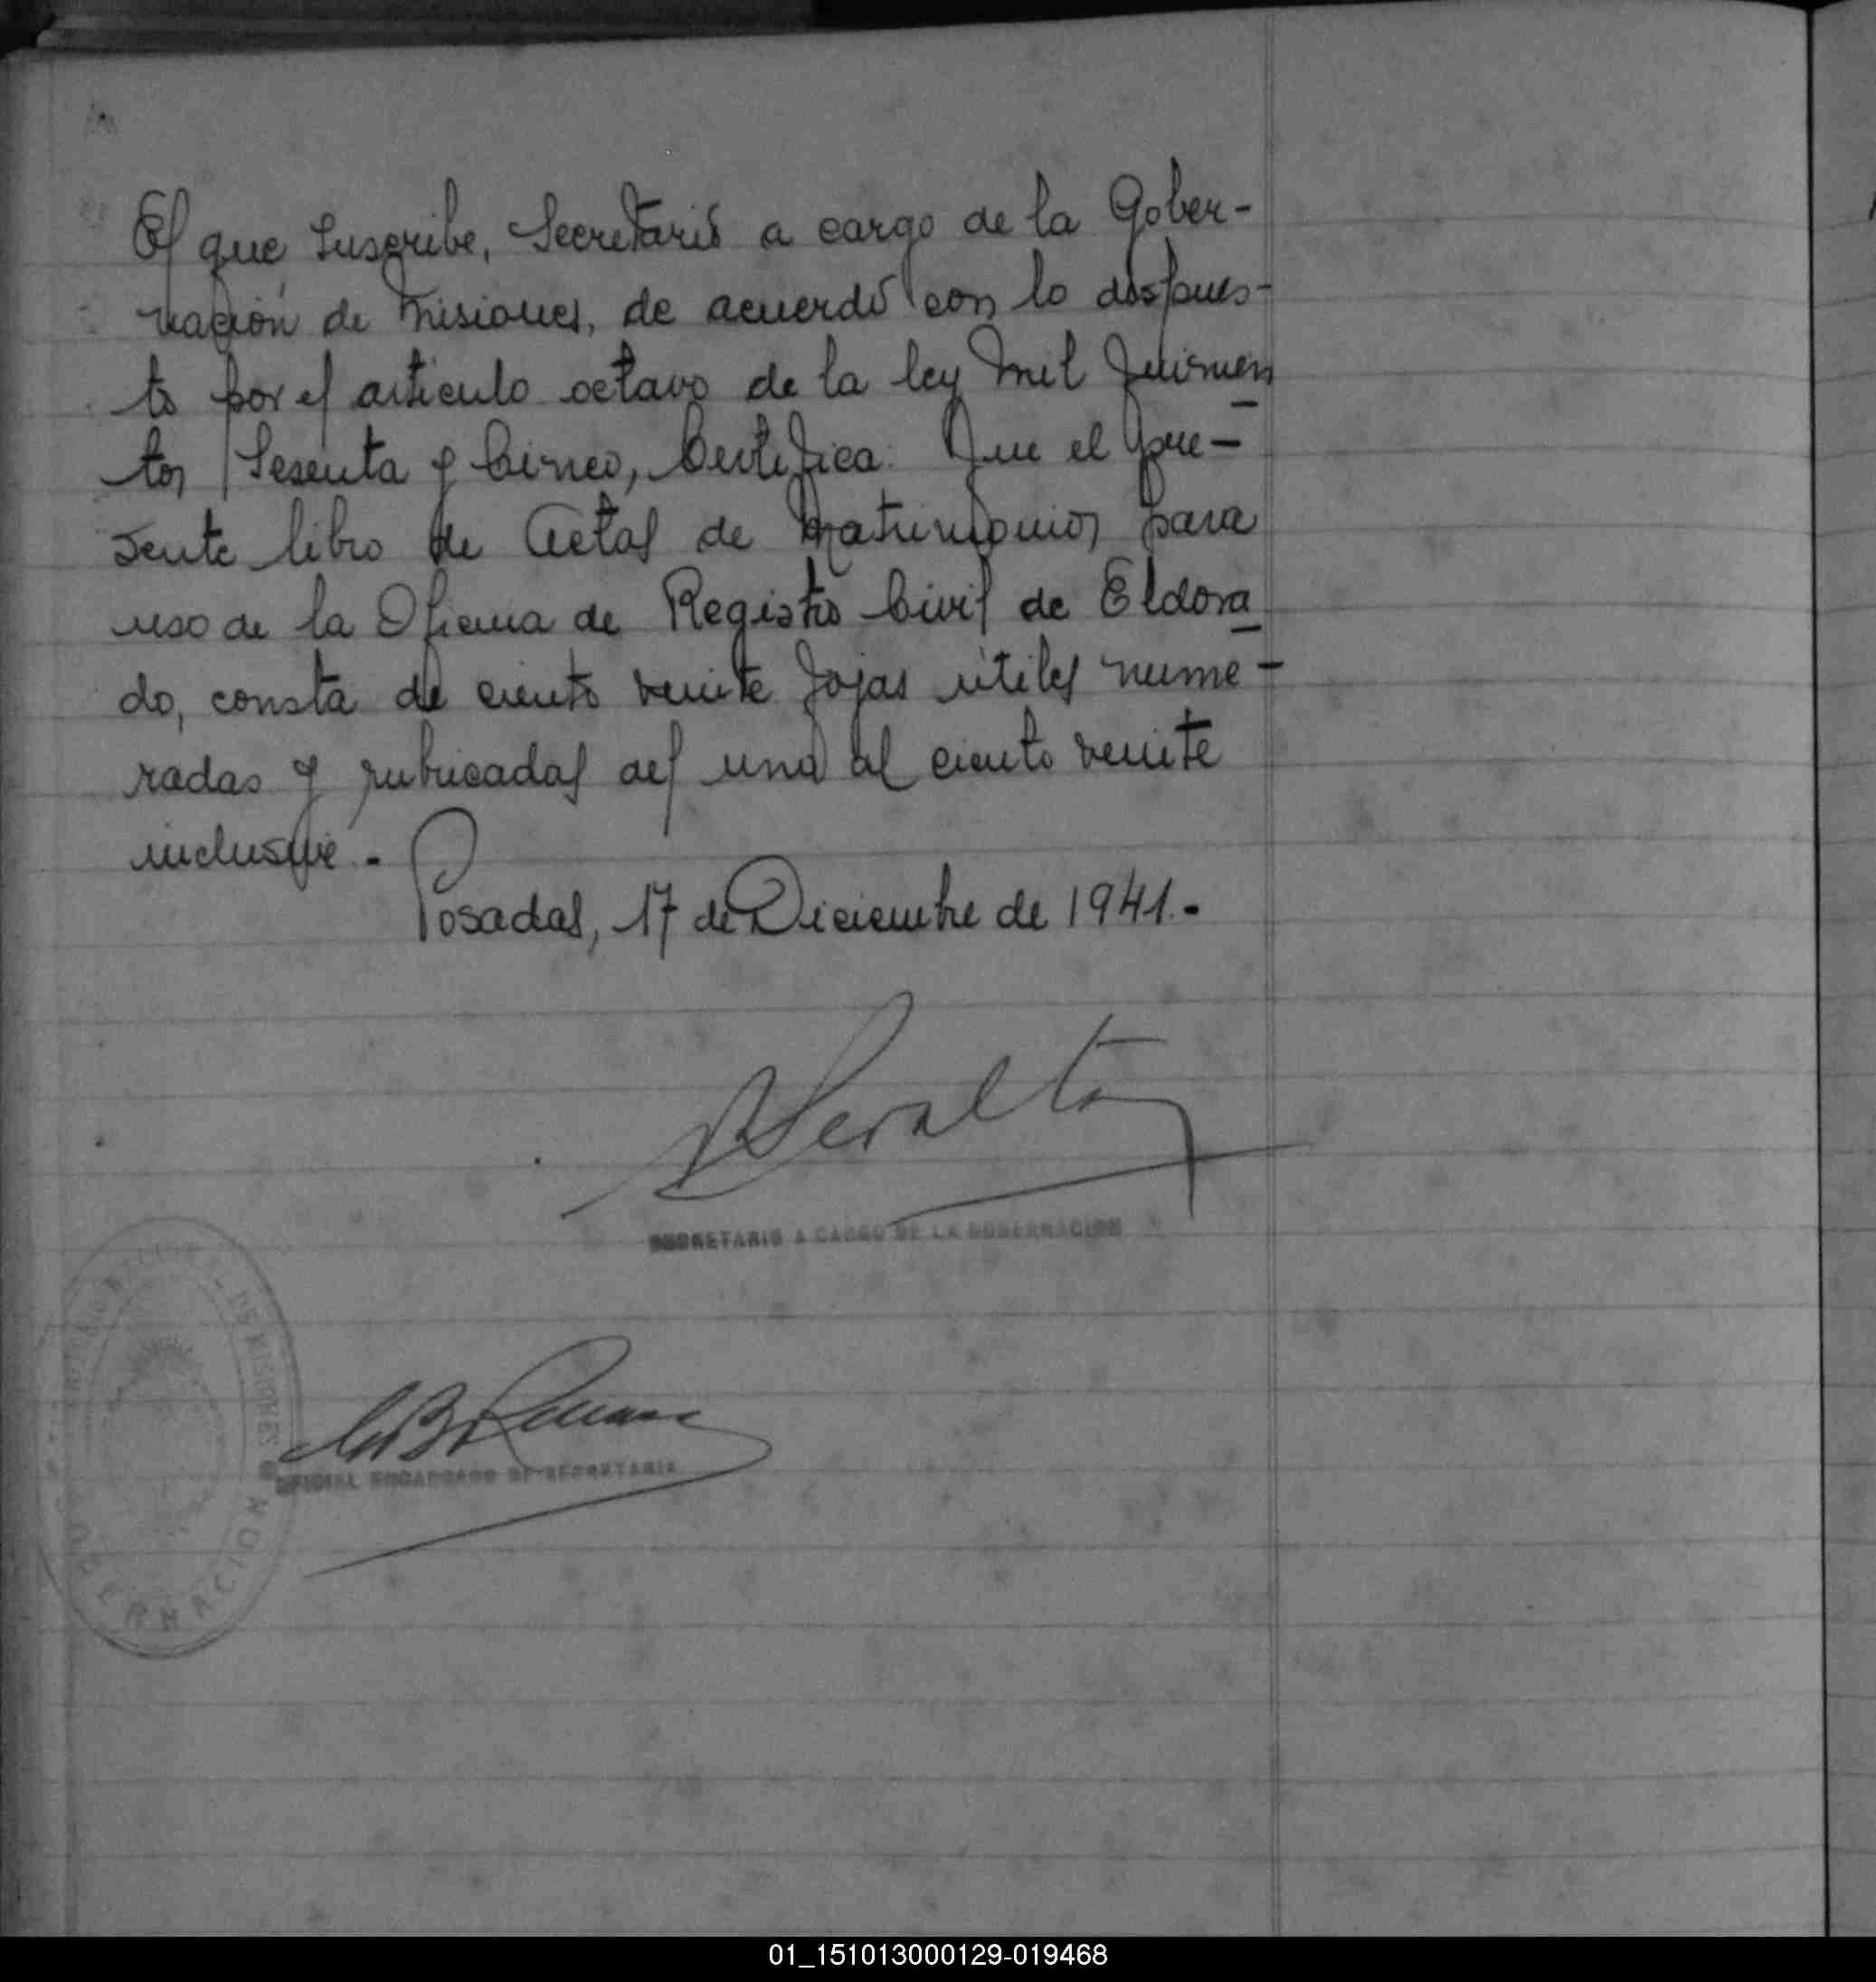 El que suscribe, Secretario a cargo de la Gober-
nación de Misiones, de acuerdo con lo dispues-
to por el articulo octavo de la ley mil quinien
tos sesenta y cinco, Certifica: Que el pre-
sente libro de Actas de Matrimonios para
uso de la Oficina de Registro Civil de Eldora
do, consta de ciento veinte fojas útiles nume-
radas y rubricadas del uno al ciento veinte
inclusive.-
Posadas, 17 de Diciembre de 1941.-
Peralta
SECRETARIO A CARGO DE LA GOBERNACION
OFICIAL ENCARGADO DE SECRETARIA
DE MISIONES
GOBERNACION
01_151013000129-019468